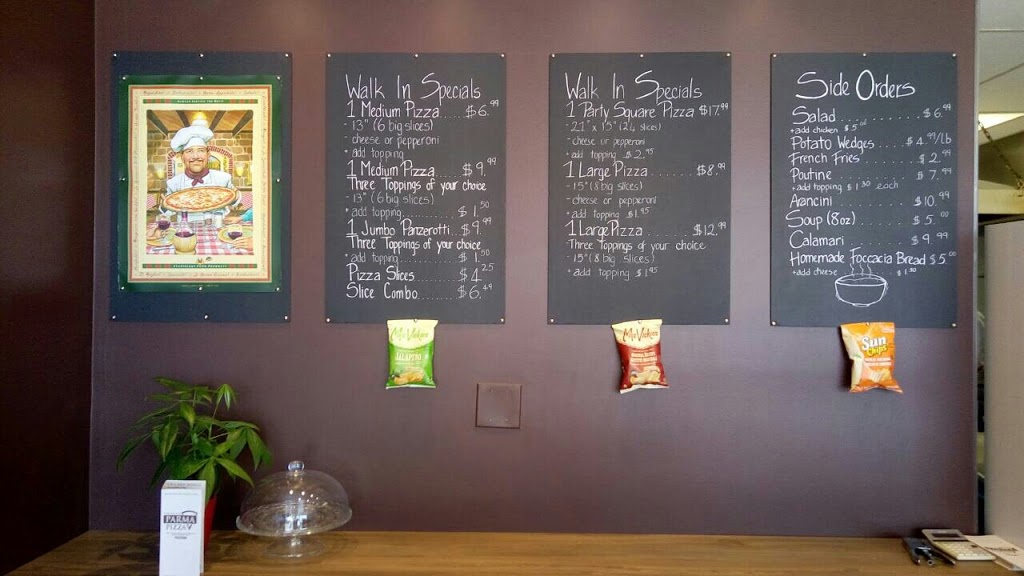 Walk In Specials
1 Medium Pizza ..... $6.99
- 13" (6 big slices)
- cheese or pepperoni
* add topping
1 Medium Pizza ..... $9.99
Three Toppings of your choice
- 13" (6 big slices)
* add topping ..... $1.50
1 Jumbo Panzerotti .. $9.99
Three Toppings of your choice
* add topping ..... $1.50
Pizza Slices ..... $4.25
Slice Combo ..... $6.49
Walk In Specials
1 Party Square Pizza $17.99
- 21" x 15" (24 slices)
- cheese or pepperoni
* add topping $2.95
1 Large Pizza ..... $8.99
- 15" (8 big slices)
- cheese or pepperoni
* add topping $1.95
1 Large Pizza ..... $12.99
Three Toppings of your choice
- 15" (8 big slices)
* add topping $1.95
Side Orders
Salad ..... $6.99
* add chicken $5.00
Potato Wedges ... $4.99/lb
French Fries ..... $2.99
Poutine ..... $7.99
* add topping $1.50 each
Arancini ..... $10.99
Soup (8oz) ..... $5.00
Calamari ..... $9.99
Homemade Foccacia Bread $5.00
* add cheese $1.50
Miss Vickie's
JALAPEÑO
Miss Vickie's
Sun
Chips
PARMA
PIZZA